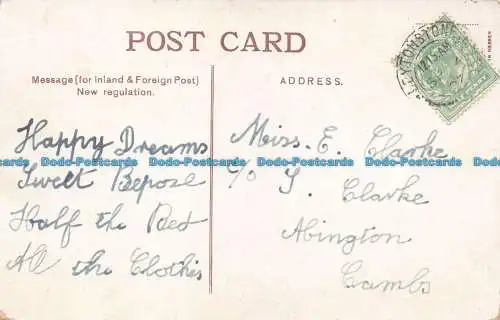 POST CARD
Message (for Inland & Foreign Post)
New regulation.
Happy Dreams
Sweet Repose
Half the Bed
All the Clothes
ADDRESS.
Miss. E. Clarke
c/o J. Clarke
Abington
Cambs
LEYTONSTONE
Dodo-Postcards Dodo-Postcards Dodo-Postcards Dodo-Postcards Dodo-Postcards